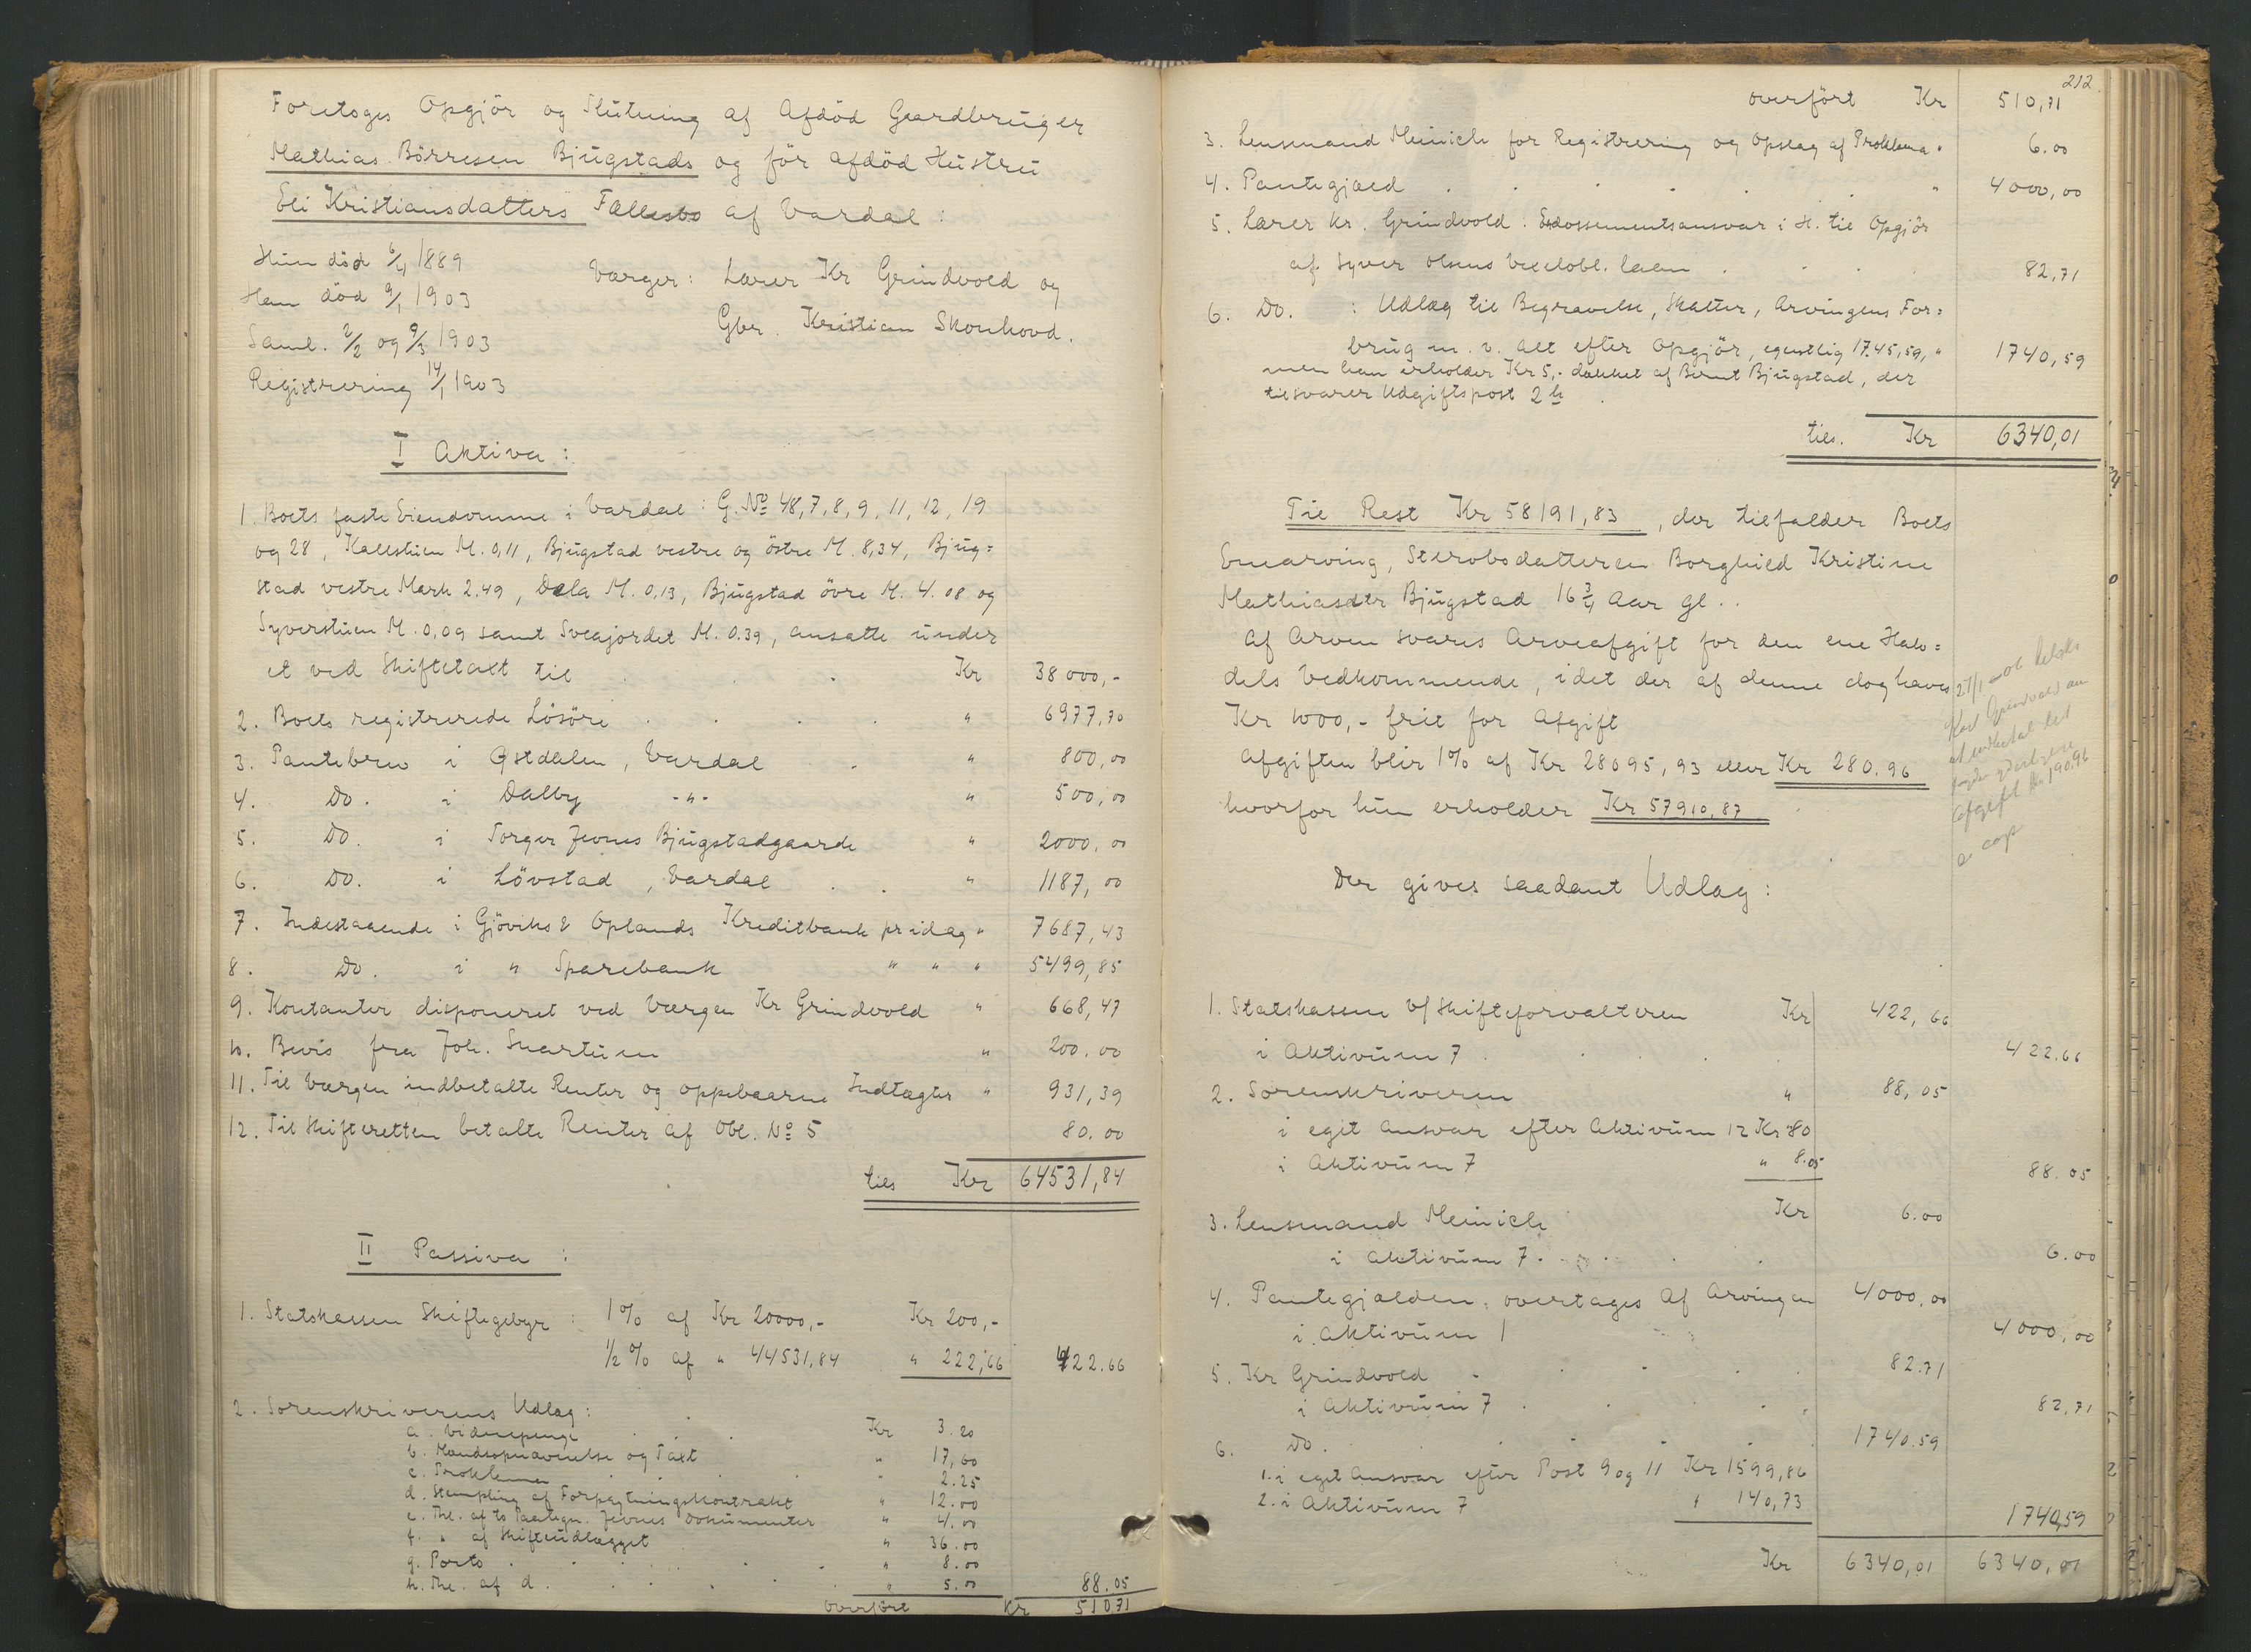 Foretoges Opgjör og Slutning af Afdöd Gaardbruger
Mathias Börresen Bjugstads og för afdöd Hustru
Eli Kristiansdatters Fællesbo af Vardal:
Hun död 6/4 1889
Værger: Lærer Kr Grindvold og
Han död 9/1 1903
Gbr. Kristian Skonhovd.
Saml. 2/2 og 9/3 1903
Registrering 14/1 1903
I Aktiva:
1. Boets faste Eiendomme i Vardal: G. No 48, 7, 8, 9, 11, 12, 19
og 28, Kallstuen M. 0,11, Bjugstad vestre og östre M. 8,34, Bjug=
stad vestre Mark 2.49, Dæla M. 0,13, Bjugstad övre M. 4.08 og
Syverstuen M. 0,09 samt Sveajordet M. 0.39, ansatte under
et ved Skiftetaxt til . . . Kr 38000,-
2. Boets registrerede Lösöre . . . . " 6977,70
3. Pantebrev i Østdalen, Vardal . " 800,00
4. Do. i Dalby -"- " 500,00
5. Do. i Torger Jevnes Bjugstadgaarde " 2000,00
6. Do. i Lövstad, Vardal . . " 1187,00
7. Indestaaende i Gjöviks & Oplands Kreditbank pr idag " 7687,43
8. Do. i " Sparebank " " " 5499,85
9. Kontanter disponeret ved Værgen Kr Grindvold " 668,47
10. Bevis fra Joh. Snartum " 200.00
11. Til Værgen indbetalte Renter og oppebaarne Indtægter " 931,39
12. Til Skifteretten betalte Renter af Obl. No 5 80.00
tils Kr 64531,84
II Passiva:
1. Statskassen Skiftegebyr: 1% af Kr 20000,- Kr 200,-
1/2% af " 44531,84 " 222,66 422.66
2. Sorenskriverens Udlæg:
a. Vidnepenge . . . Kr 3.20
b. Mandsopnævnelse og Taxt " 17,60
c. Proklama . . . . " 2.25
d. Stempling af Forpagtningskontrakt " 12.00
e. Thl. af to Jevnes Dokumenter " 4.00
f. " af Skifteudlægget " 36.00
g. Porto . . . . " 8.00
h. Thl. af d. . . . . " 5.00 88.05
Overført Kr 510.71
212.
overfört Kr 510,71
3. Lensmand Meinich for Registrering og Opslag af Proklama " 6.00
4. Pantegjæld . . . . . . " 4000,00
5. Lærer Kr. Grindvold: Endossementsansvar i H. til Opgjör
af Syver Olsens Vexelobl. laan . . . 82,71
6. Do. : Udlæg til Begravelse, Skatter, Arvingens For=
brug m. v. alt efter Opgjör, egentlig 1745,59, " 1740,59
men han erholder Kr 5,- dækket af Bernt Bjugstad, der
tilsvarer Udgiftspost 2 h .
tils. Kr 6340,01
Til Rest Kr 58191,83, der tilfalder Boets
Enearving, Sterbodatteren Borghild Kristine
Mathiasdtr Bjugstad 16 3/4 Aar gl..
Af Arven svares Arveafgift for den ene Halv=
dels Vedkommende, idet der af denne dog haves
Kr 1000,- frit for Afgift
Afgiften blir 1% af Kr 28095,93 eller Kr 280.96
hvorfor hun erholder Kr 57910,87
27/1 06
Grindvold
afgift Kr 190.96
Der gives saadant Udlæg:
1. Statskassen v/ Skifteforvalteren Kr 422,66
i Aktivum 7 . . . . 422.66
2. Sorenskriveren " 88,05
i eget Ansvar efter Aktivum 12 Kr 80
i Aktivum 7 " 8.05 88.05
3. Lensmand Meinich Kr 6.00
i Aktivum 7 . . . . 6.00
4. Pantegjælden, overtages af Arvingen 4000,00
i Aktivum 1 4000,00
5. Kr Grindvold . . . . 82.71
i Aktivum 7 . . . . 82,71
6. Do. . . . . . 1740.59
1. i eget Ansvar efter Post 9 og 11 Kr 1599,86
2. i Aktivum 7 " 140,73 1740,59
Kr 6340,01 6340,01